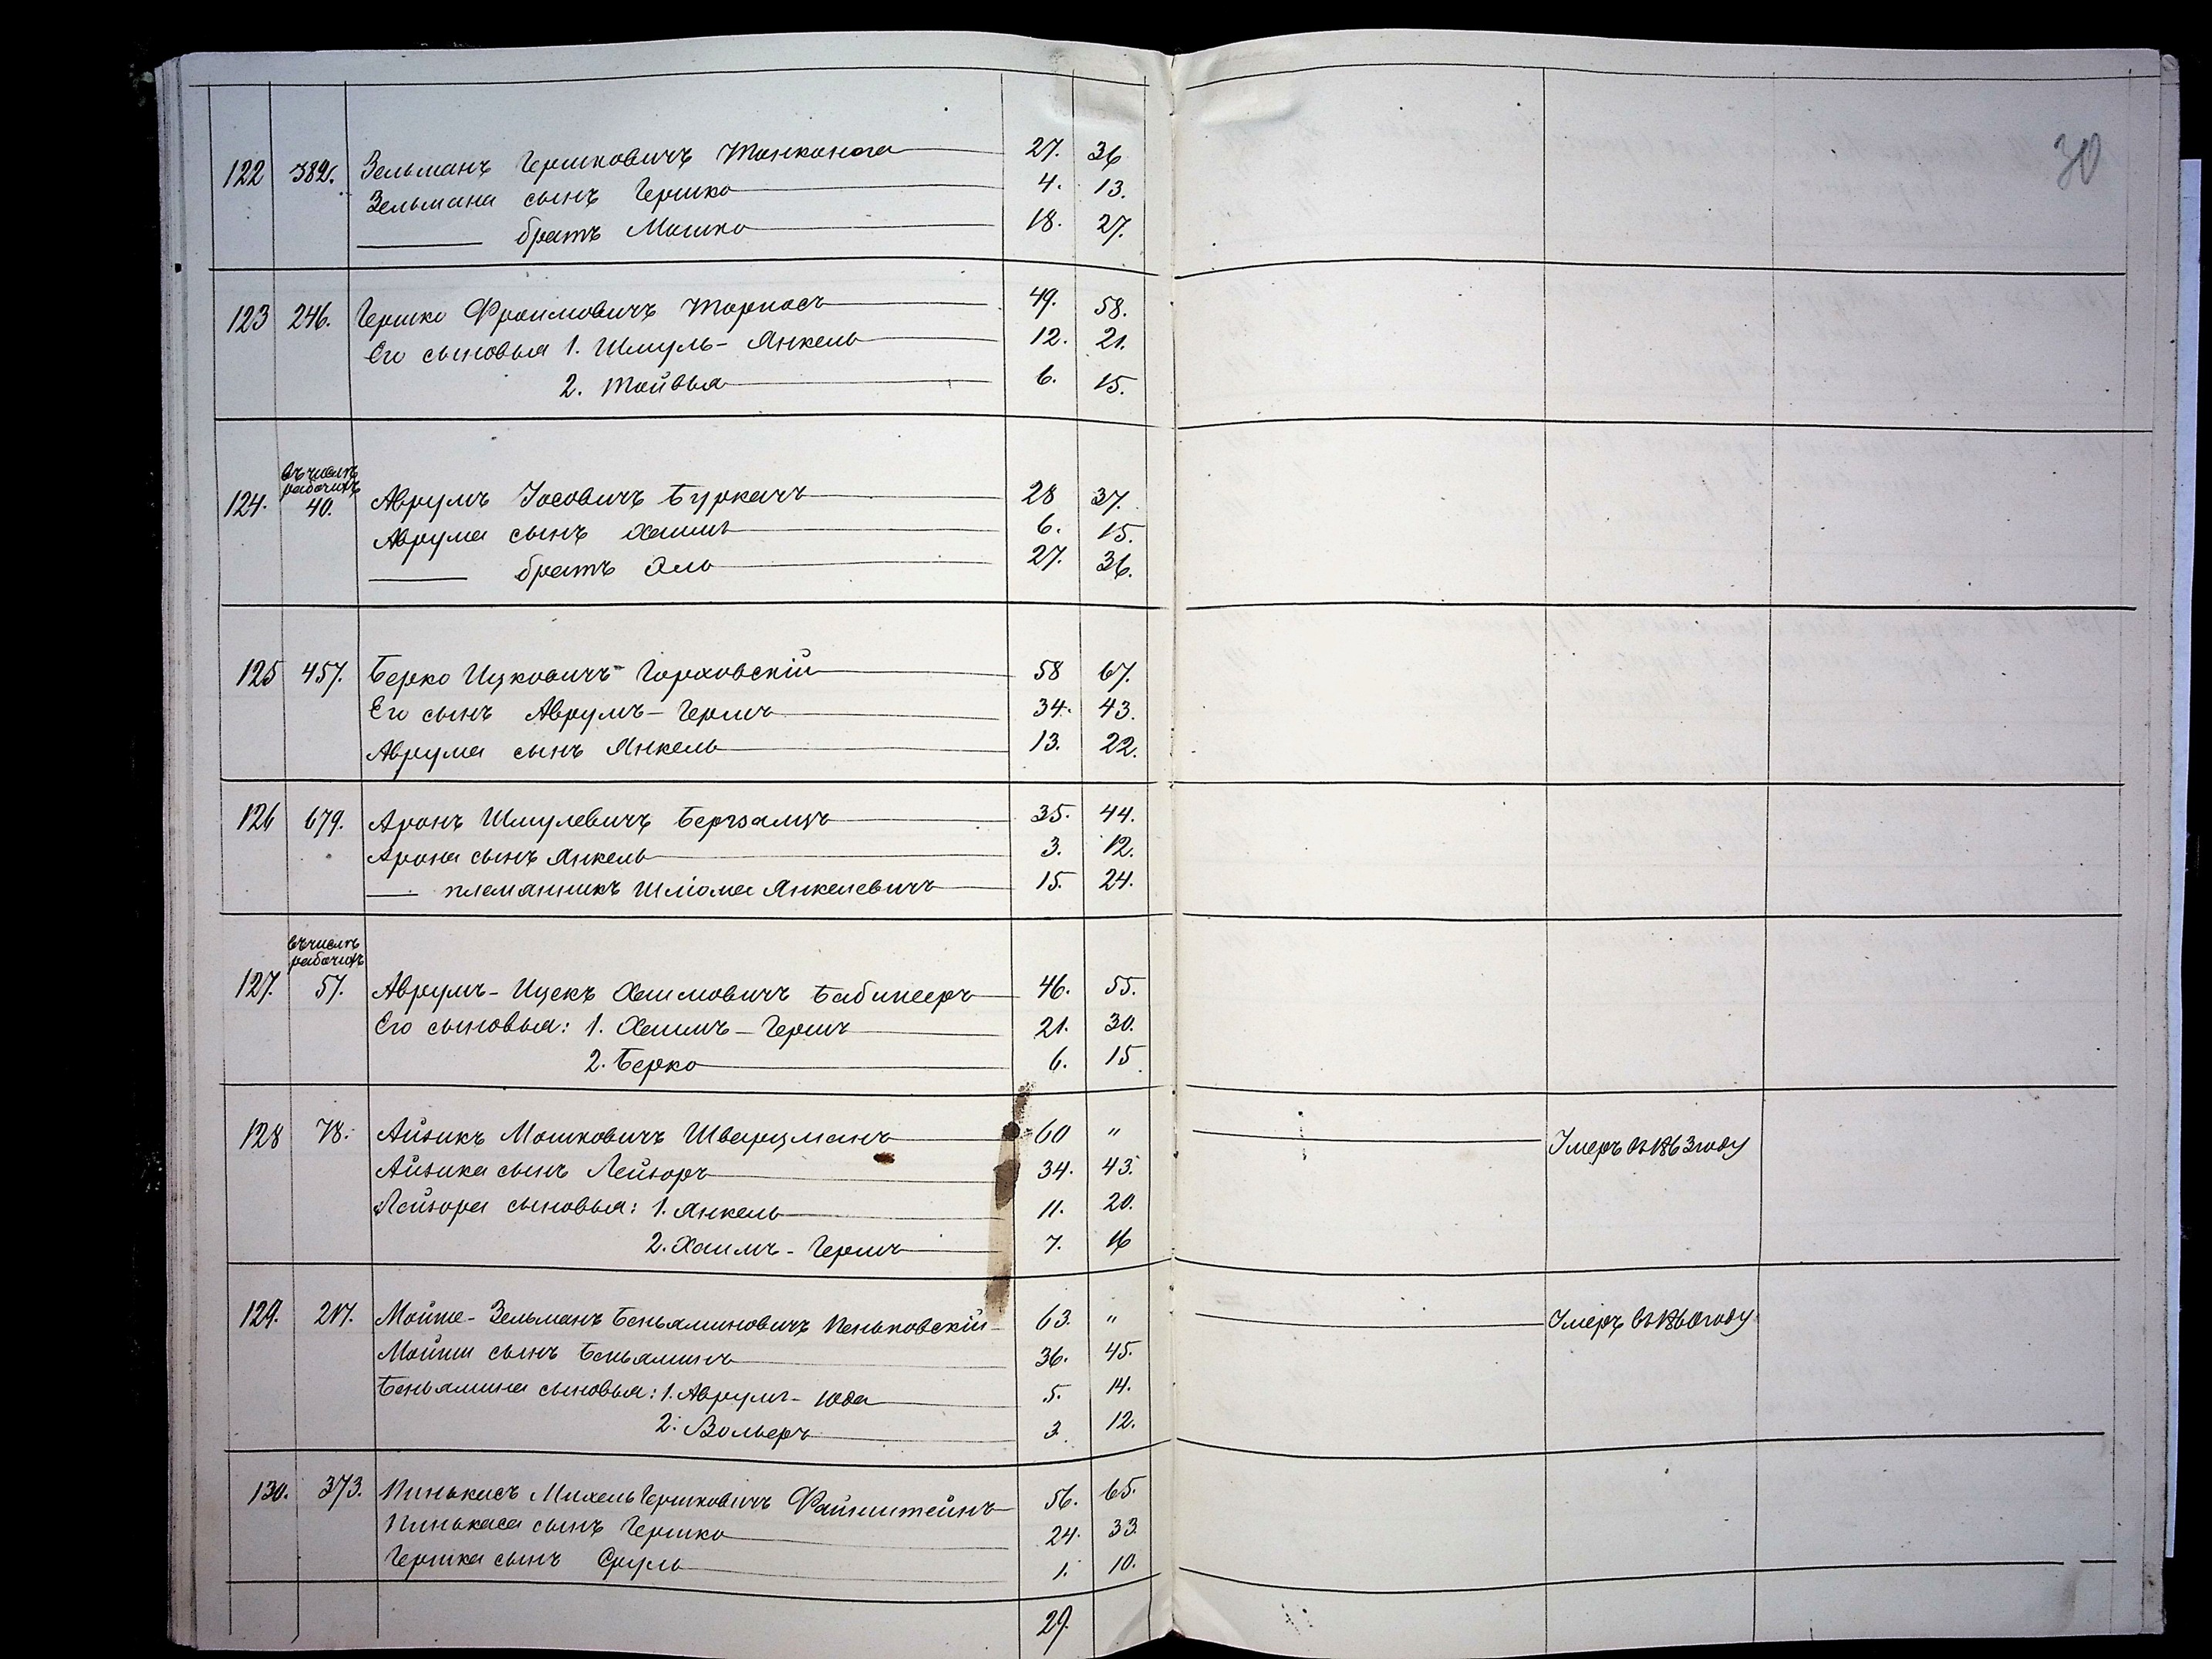 30
122 382. Зельманъ Гершковичъ Тонконога 27. 36
Зельмана сынъ Гершко 4. 13.
братъ Мошко 18. 27.
123 246. Гершко Фроимовичъ Торносъ 49. 58.
Его сыновья 1. Шмуль- Янкель 12. 21.
2. Тойвья 6. 15.
въ числѣ
рабочихъ
124. 40. Аврумъ Іосовичъ Буркачъ 28 37.
Аврума сынъ Хаимъ 6. 15.
братъ Эль 27. 36.
125 457. Берко Ицковичъ Гороховскій 58 67.
Его сынъ Аврумъ- Гершъ 34. 43.
Аврума сынъ Янкель 13. 22.
126 679. Аронъ Шмулевичъ Бергзамъ 35. 44.
Арона сынъ Янкель 3. 12.
племянникъ Шліома Янкелевичъ 15. 24.
въ числѣ
рабочихъ
127. 57. Аврумъ- Ицекъ Хаимовичъ Бабинеръ 46. 55.
Его сыновья: 1. Хаимъ- Гершъ 21. 30.
2. Берко 6. 15
128 78. Айзикъ Мошковичъ Шварцманъ 60 " Умеръ въ 1863 году
Айзика сынъ Лейзоръ 34. 43.
Лейзора сыновья: 1. Янкель 11. 20.
2. Хаимъ- Гершъ 7. 16
129. 217. Мойше- Зельманъ Беньяминовичъ Пеньковскій 63. " Умеръ въ 1860 году
Мойши сынъ Беньяминъ 36. 45.
Беньямина сыновья: 1. Аврумъ- Юда 5. 14.
2. Вольеръ 3. 12.
130. 373. Пинькасъ Михель Гершковичъ Файнштейнъ 56. 65.
Пинькаса сынъ Гершко 24. 33.
Гершка сынъ Сруль 1. 10.
29.